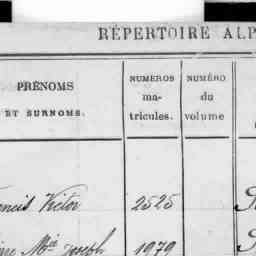 RÉPERTOIRE ALP
PRÉNOMS
ET SURNOMS.
NUMEROS
ma-
tricules.
NUMÉRO
du
volume
Victor 2525
Joseph 1979